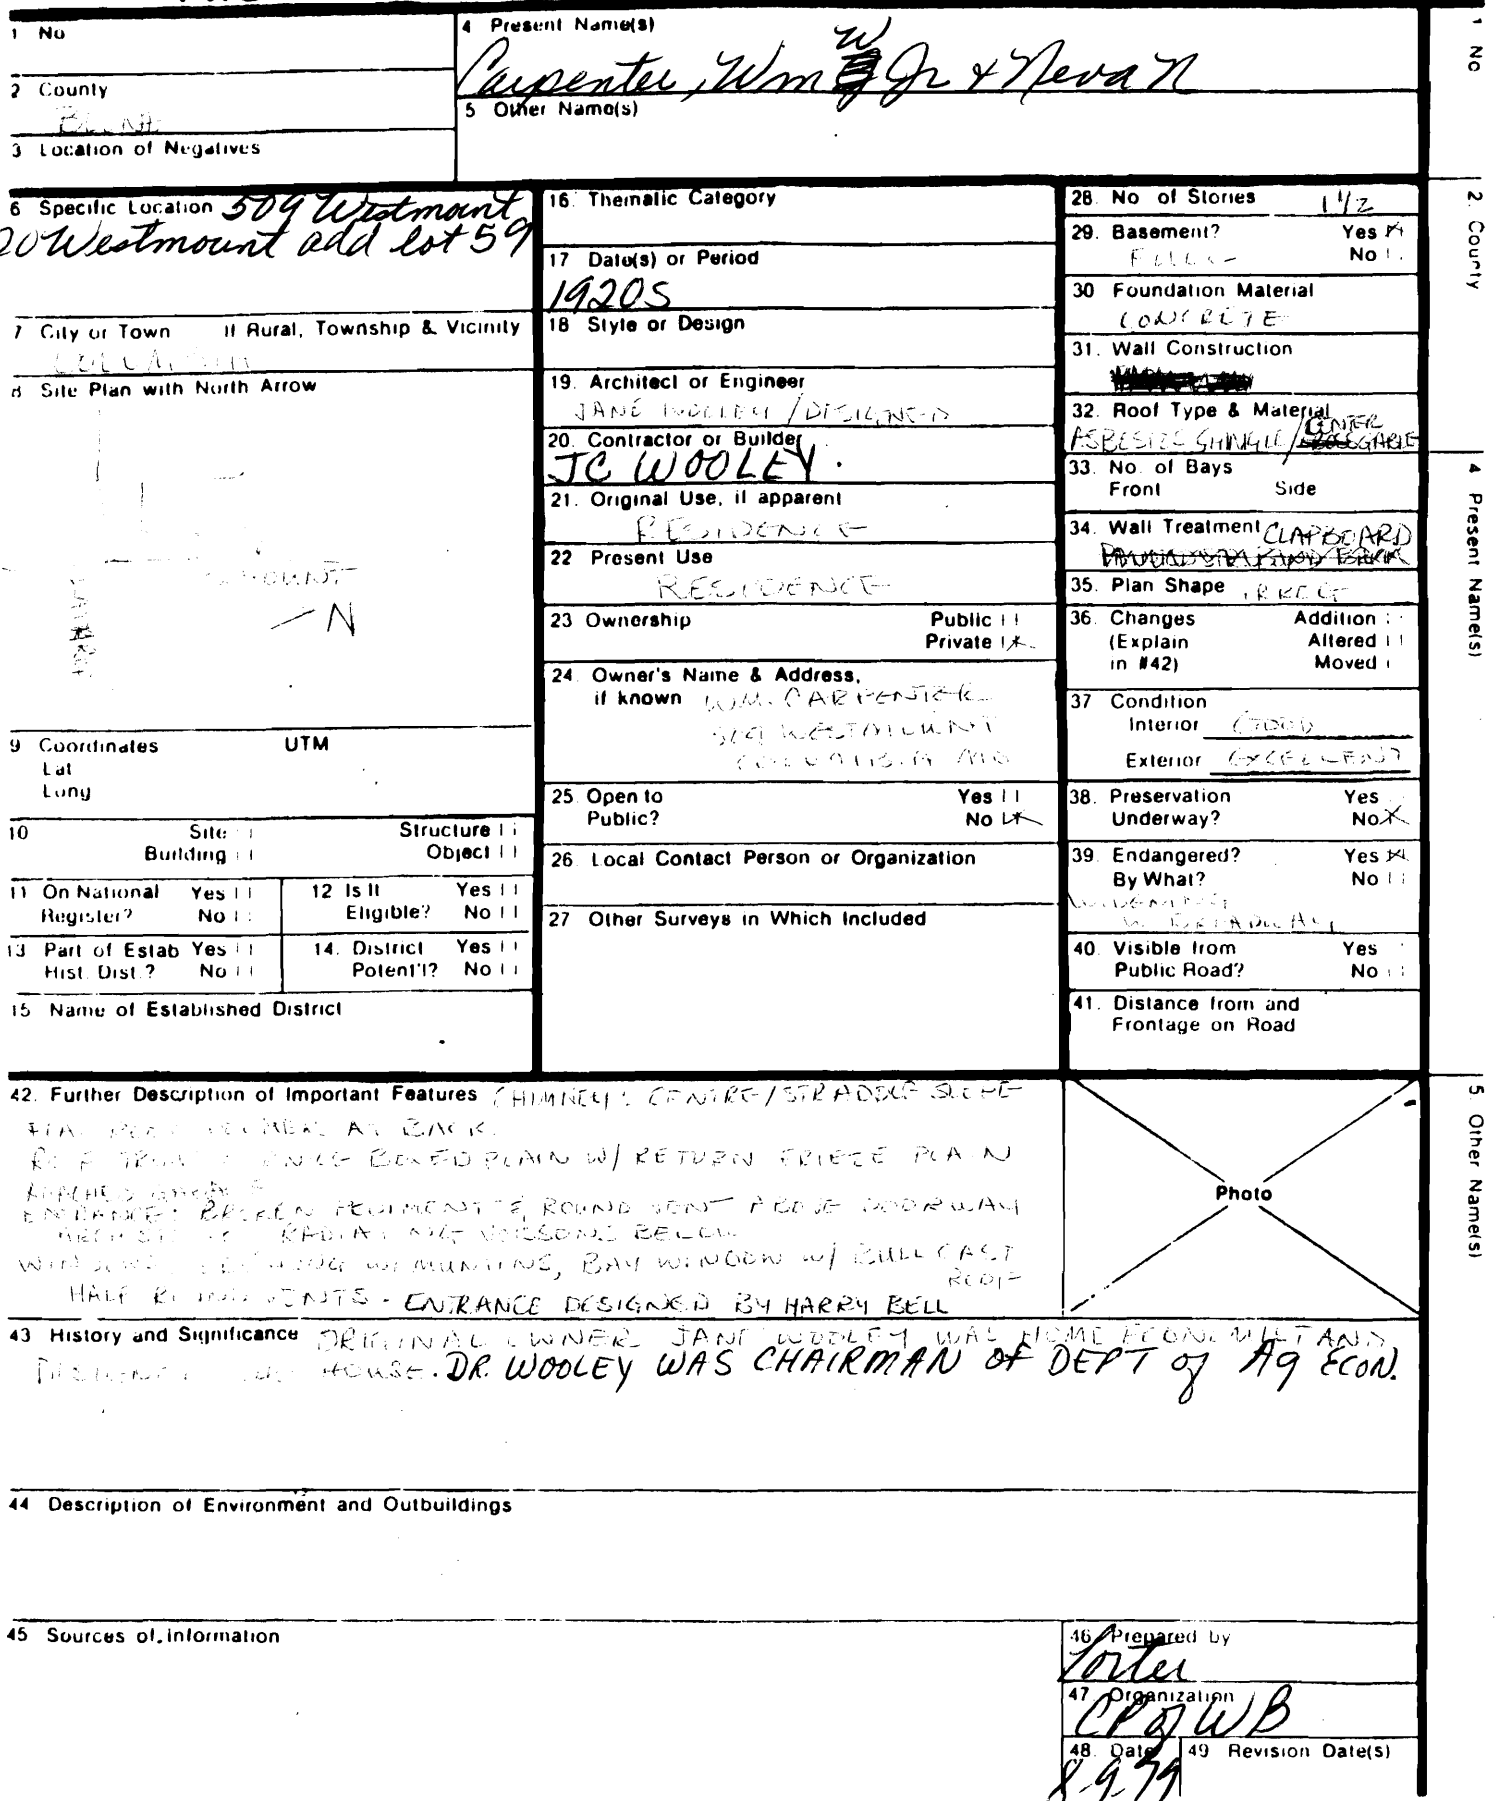 1 No
2 County
3 Location of Negatives
4 Present Name(s)
Carpenter, Wm W Jr & Neva N
5 Other Name(s)
6 Specific Location 509 Westmount
20 Westmount add lot 59
7 City or Town If Rural, Township & Vicinity
8 Site Plan with North Arrow
N
9 Coordinates UTM
Lat
Long
10 Site Structure
Building Object
11 On National Register? Yes No
12 Is It Eligible? Yes No
13 Part of Estab Hist. Dist.? Yes No
14. District Potent'l? Yes No
15 Name of Established District
16. Thematic Category
17 Date(s) or Period
1920S
18 Style or Design
19. Architect or Engineer
JANE WOOLEY / DESIGNED
20. Contractor or Builder
JC WOOLEY.
21. Original Use, if apparent
RESIDENCE
22 Present Use
RESIDENCE
23 Ownership Public
Private X
24. Owner's Name & Address,
if known WM. CARPENTER
509 WESTMOUNT
COLUMBIA MO
25. Open to Yes
Public? No X
26. Local Contact Person or Organization
27 Other Surveys in Which Included
28. No of Stories 1 1/2
29. Basement? Yes X
FULL No
30 Foundation Material
CONCRETE
31. Wall Construction
32. Roof Type & Material
SHINGLE / CENTER GABLE
33. No. of Bays
Front Side
34. Wall Treatment CLAPBOARD
35. Plan Shape IRREG
36. Changes Addition
(Explain Altered
in #42) Moved
37 Condition
Interior GOOD
Exterior EXCELLENT
38. Preservation Yes
Underway? No X
39. Endangered? Yes X
By What? No
WIDENING
W. BROADWAY
40. Visible from Yes
Public Road? No
41. Distance from and
Frontage on Road
42. Further Description of Important Features CHIMNEY: CENTRE/STRADDLE SLOPE
AT BACK
BOXED PLAIN W/ RETURN FRIEZE PLAIN
ATTACHED GARAGE
ENTRANCE: BROKEN PEDIMENT & ROUND VENT ABOVE DOORWAY
RADIATING BELOW
W/ MUNTINS, BAY WINDOW W/ BELLCAST
ROOF
HALF ROUND VENTS - ENTRANCE DESIGNED BY HARRY BELL
Photo
43 History and Significance ORIGINAL OWNER JANE WOOLEY WAS HOME ECONOMIST AND
HOUSE. DR. WOOLEY WAS CHAIRMAN OF DEPT of Ag ECON.
44 Description of Environment and Outbuildings
45 Sources of Information
46 Prepared by
Porter
47 Organization
CP of WB
48. Date
8-9-79
49 Revision Date(s)
1 No
2. County
4 Present Name(s)
5. Other Name(s)